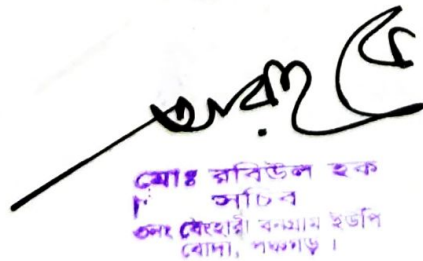 মোঃ রবিউল হক
সচিব
৩নং বেংহারী বনগ্রাম ইউপি
বোদা, পঞ্চগড় ।